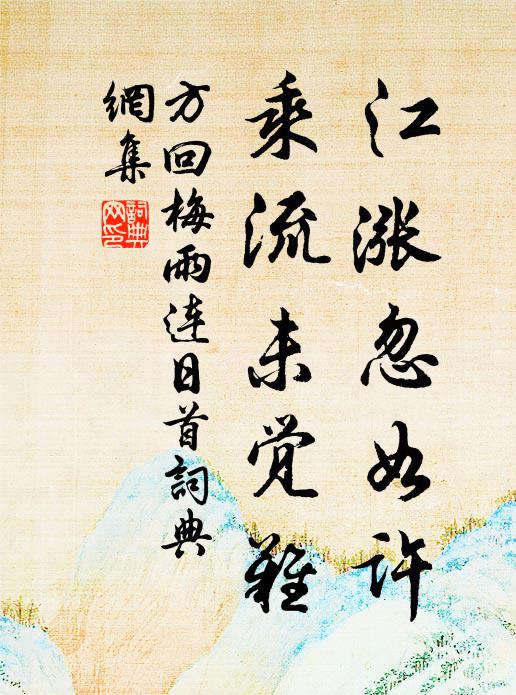 江涨忽如许
乘流未觉难
方回梅雨连日首詞典
網集
詞典
网印